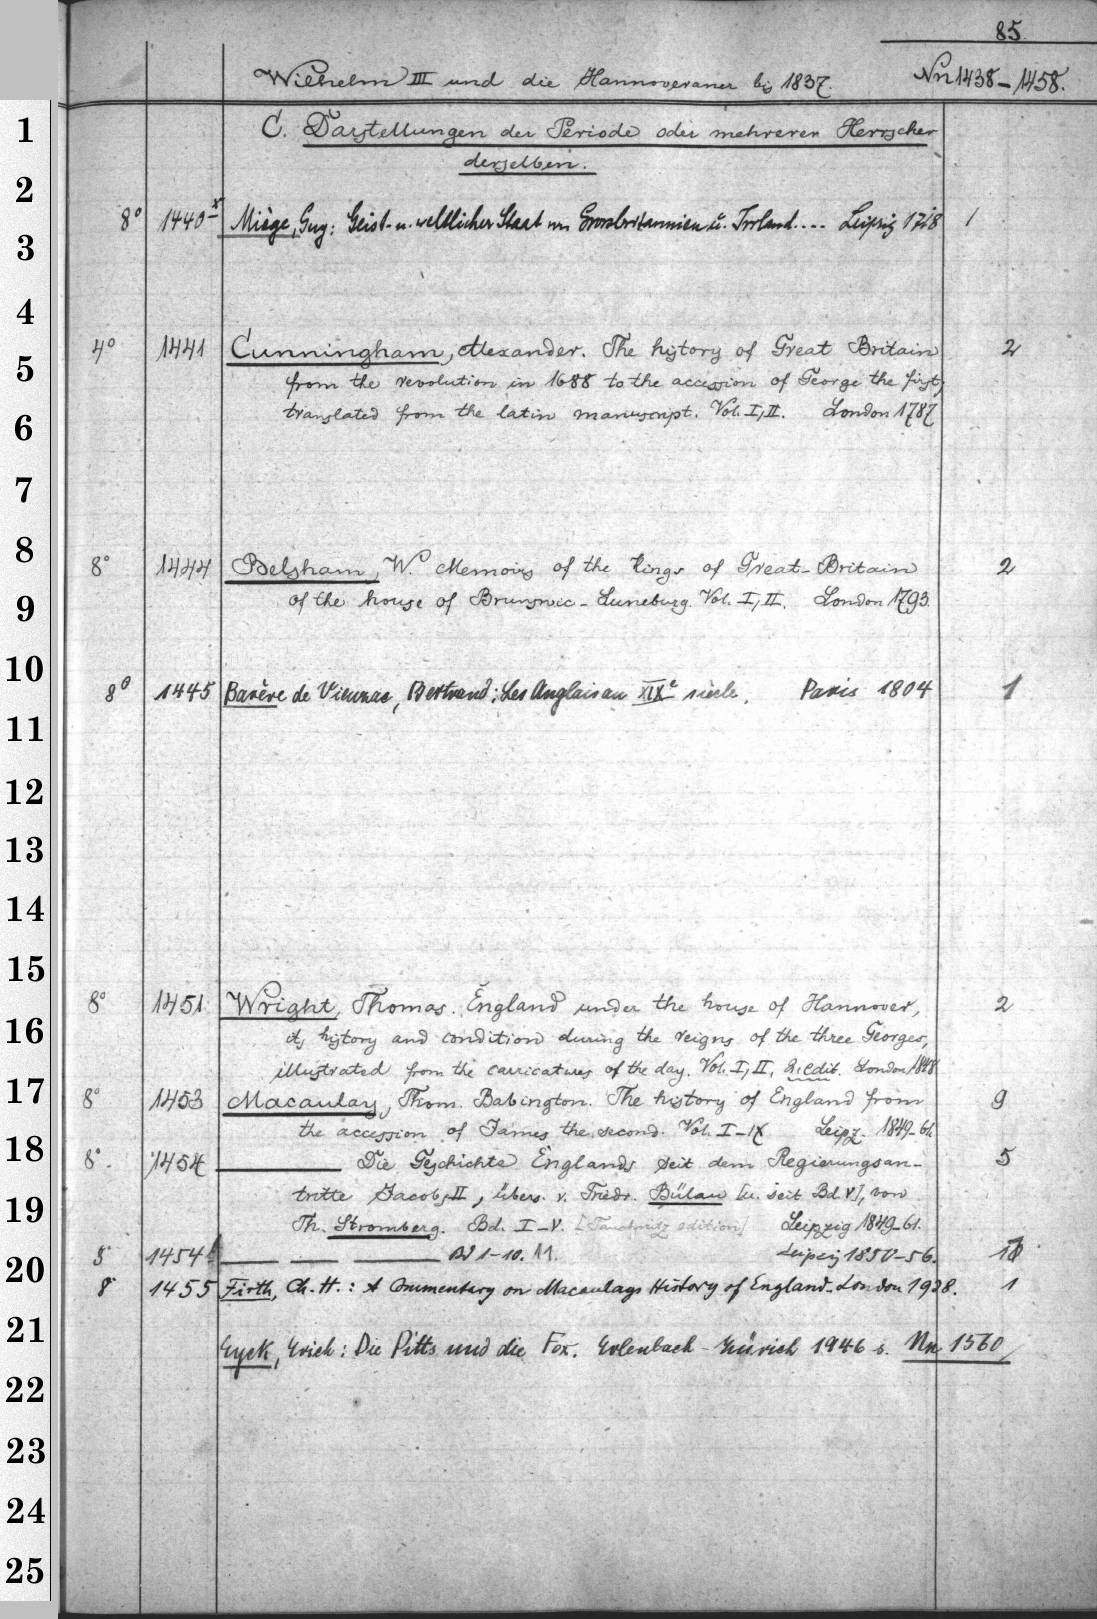 85
Wilhelm III und die Hannoveraner bis 1837. Nn 1438-1458.
1
C. Darstellungen der Periode oder mehrerer Herrscher
derselben.
2
8° 1440 x Miège, Guy: Geist- u. weltlicher Staat von Grossbritannien u. Irrland.... Leipzig 1718 1
3
4
4° 1441 Cunningham, Alexander. The history of Great Britain 2
5
from the revolution in 1688 to the accession of George the first,
translated from the latin manuscript. Vol. I, II. London 1787
6
7
8
8° 1444 Belsham, W. Memoirs of the kings of Great-Britain 2
9
of the house of Brunswic-Luneburg. Vol. I, II. London 1793.
10
8° 1445 Barère de Vieuzac, Bertrand: Les Anglais au XIXe siècle. Paris 1804 1
11
12
13
14
15
8° 1451 Wright, Thomas. England under the house of Hannover, 2
16
its history and condition during the reigns of the three Georges,
illustrated from the carricatures of the day. Vol. I, II. 2. edit. London 1848
17
8° 1453 Macaulay, Thom. Babington. The history of England from 9
the accession of James the second. Vol. I-IX Leipz. 1849-61
18
8°. 1454 Die Geschichte Englands seit dem Regierungsan- 5
tritte Jacobs II, übers. v. Friedr. Bülau [u. seit Bd. V], von
19
Th. Stromberg. Bd. I-V. [Tauchnitz edition] Leipzig 1849-61.
8° 1454b Bd 1-10. 11. Leipzig 1850-56.
20
8° 1455 Firth, Ch. H.: A Commentary on Macaulays History of England. London 1928. 1
21
Eyck, Erich: Die Pitts und die Fox. Erlenbach-Zürich 1946 s. Nn 1560
22
23
24
25